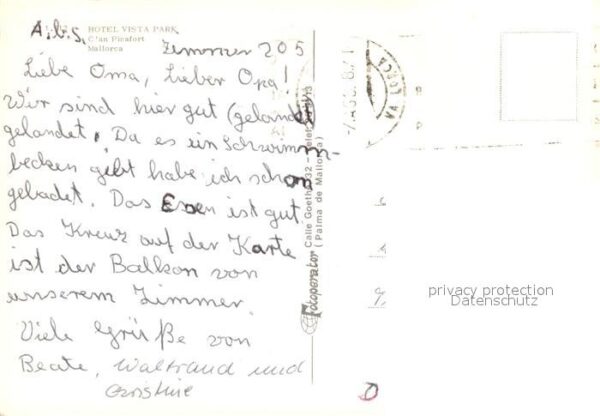 A.b.s. HOTEL VISTA PARK
C'an Picafort
Mallorca
Zimmer 205
Liebe Oma, Lieber Opa!
Wir sind hier gut (gelande
gelandet. Da es ein Schwimm-
becken gibt habe ich schon
gebadet. Das Essen ist gut.
Das Kreuz auf der Karte
ist der Balkon von
unserem Zimmer.
Viele Grüße von
Beate, Waltraud und
Christine
Fotoperator Calle Goethe, 32 -
(Palma de Mallorca)
MALLORCA
privacy protection
Datenschutz